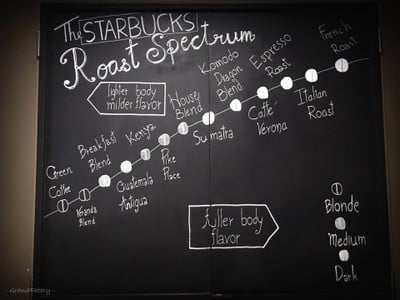 The STARBUCKS
Roast Spectrum
lighter body
milder flavor
Green
Coffee
Veranda
Blend
Breakfast
Blend
Guatemala
Antigua
Kenya
Pike
Place
House
Blend
Sumatra
Komodo
Dragon
Blend
Caffé
Verona
Espresso
Roast
Italian
Roast
French
Roast
fuller body
flavor
Blonde
Medium
Dark
~GrandEatery~